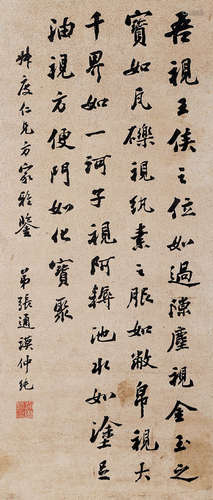 吾視王侯之位如過隙塵視金玉之
寶如瓦礫視紈素之服如敝帛視大
千界如一訶子視阿耨池水如塗足
油視方便門如化寶聚
叔度仁兄方家雅鑒
弟張通謨仲純